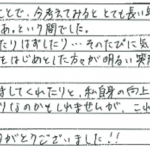 ことで、今考えてみるととても長い
あっという間でした。
たりはずしたり…そのたびに気
をはじめとした方々が明るい笑
ましてくれたりと、私自身の向上
りなのかもしれませんが、これ
がとうございました!!